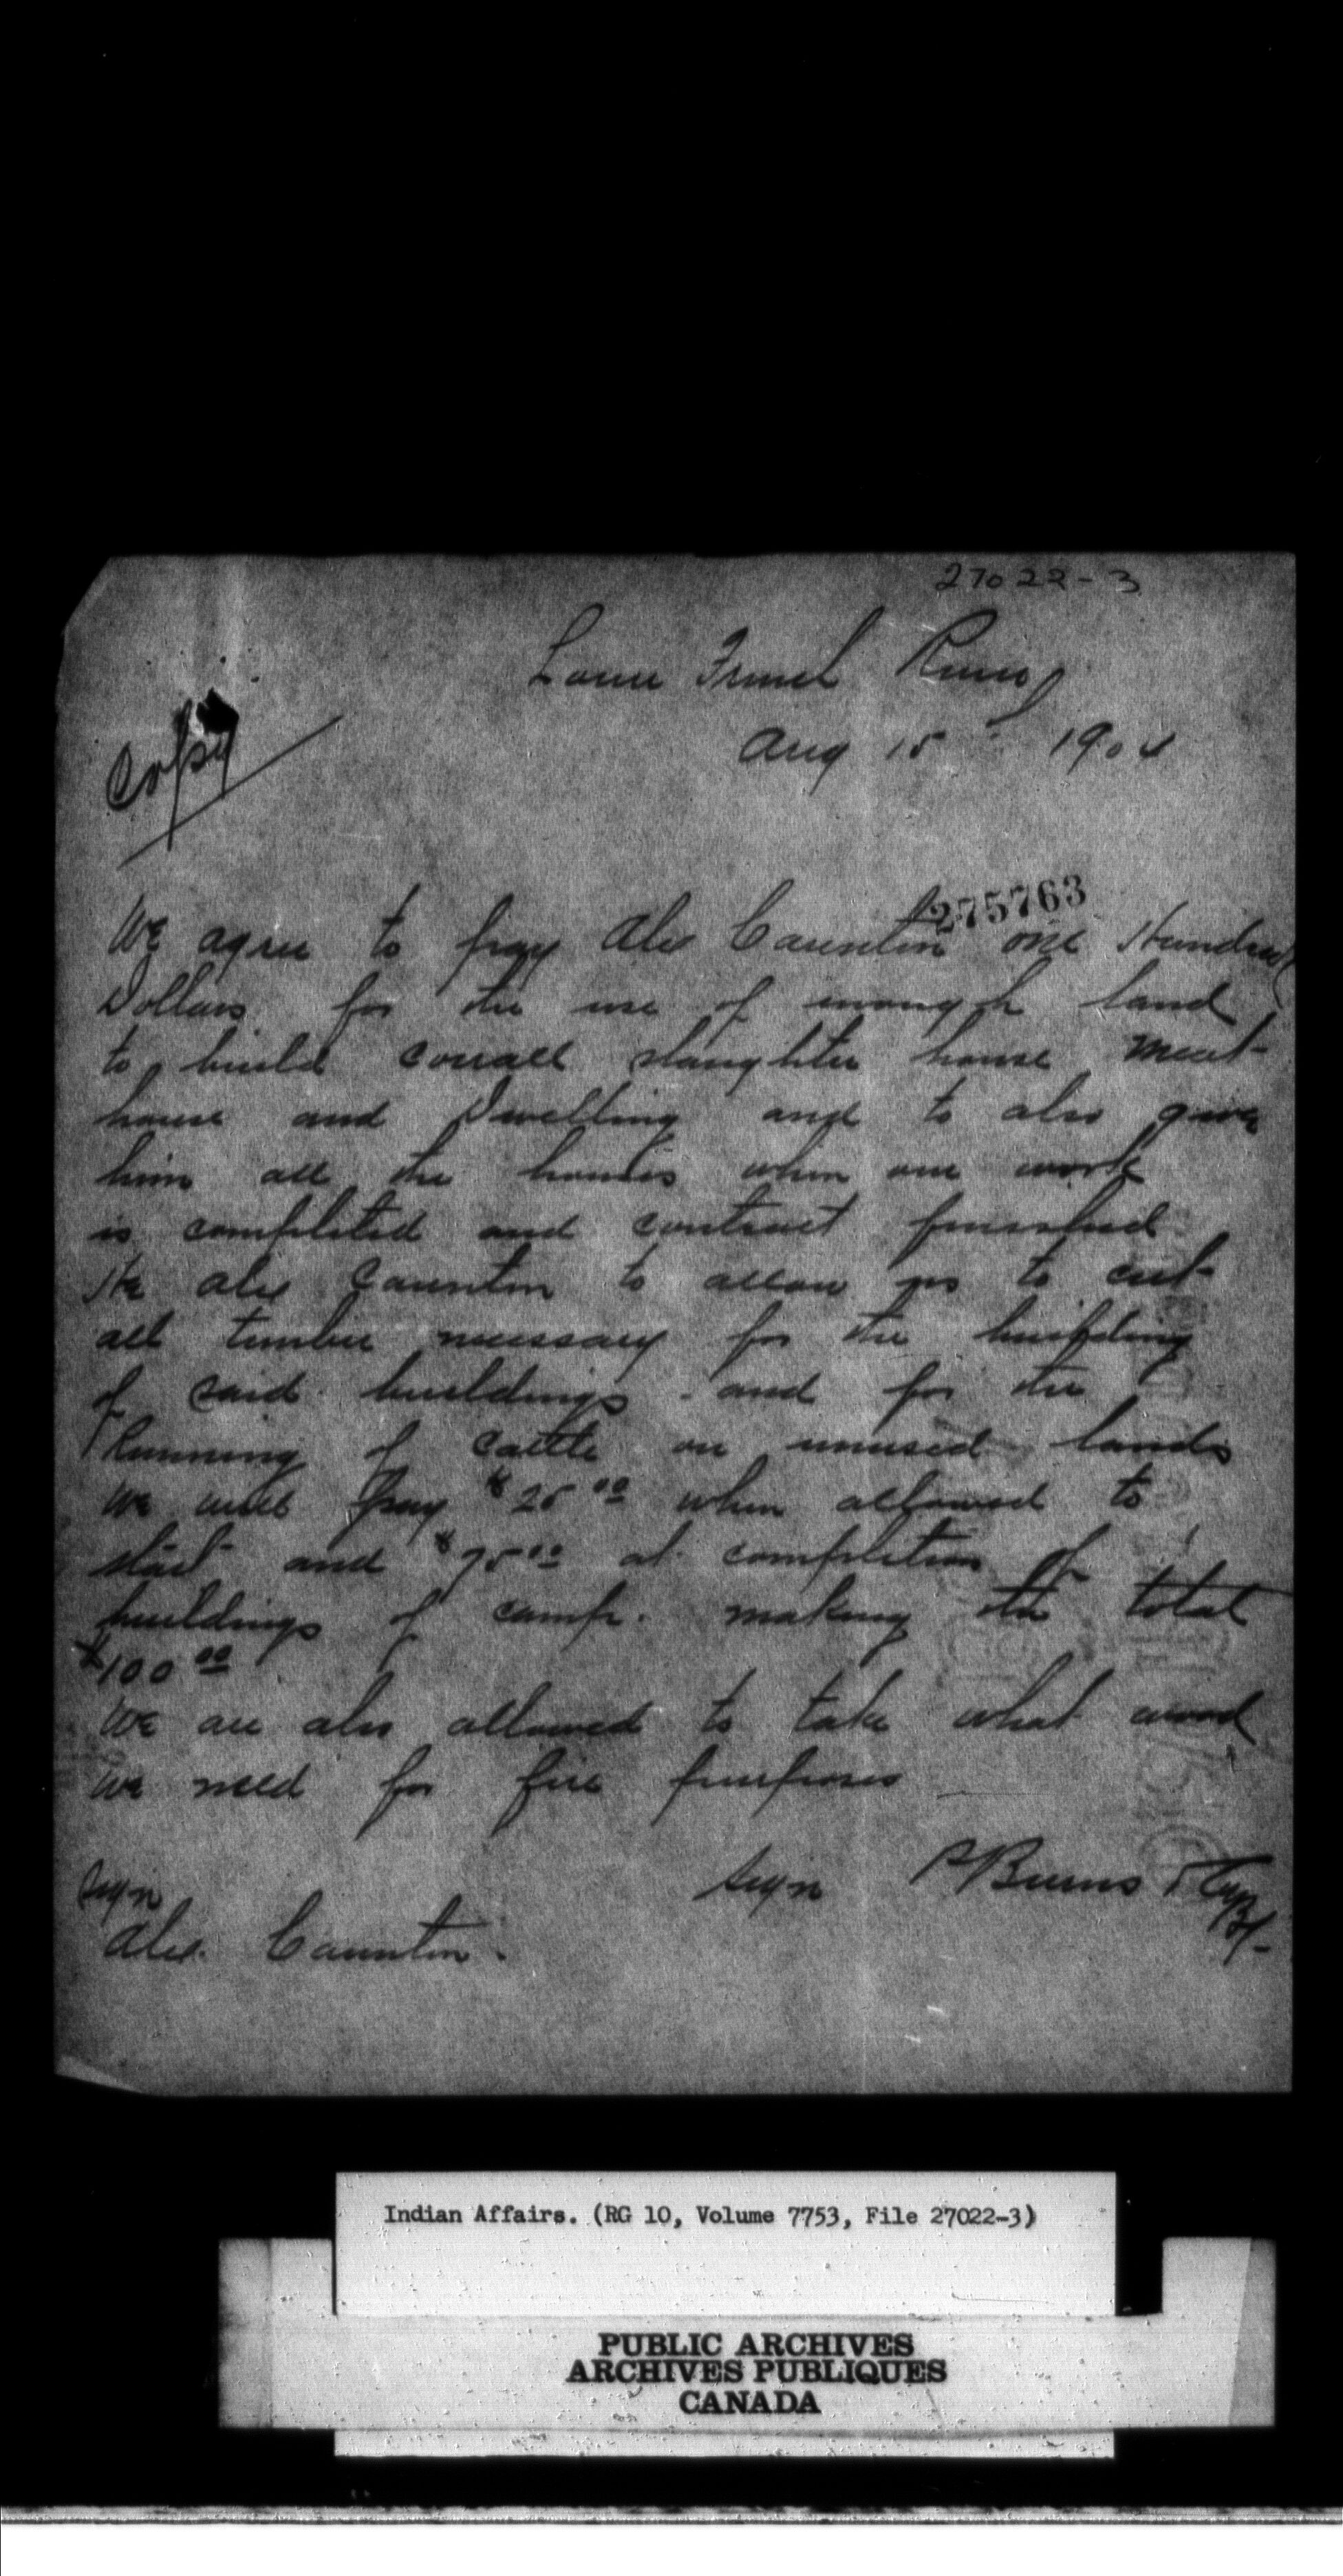 27022-3
Lower French River
Aug 15th 1904
Copy
275763
We agree to pay Alex Caunton one Hundred
Dollars for the use of enough land
to build corrall slaughter house meat
house and Dwelling and to also give
him all the houses when our work
is completed and contract finished
He Alex Caunton to allow us to cut
all timber necessary for the building
of said buildings - and for the
Running of cattle on unused lands
We will pay $25.00 when allowed to
start and $75.00 at completion of
buildings of camp. making the total
$100.00
We are also allowed to take what wood
we need for fire purposes
Sign P Burns & Coy
Sign
Alex. Caunton.
Indian Affairs. (RG 10, Volume 7753, File 27022-3)
PUBLIC ARCHIVES
ARCHIVES PUBLIQUES
CANADA